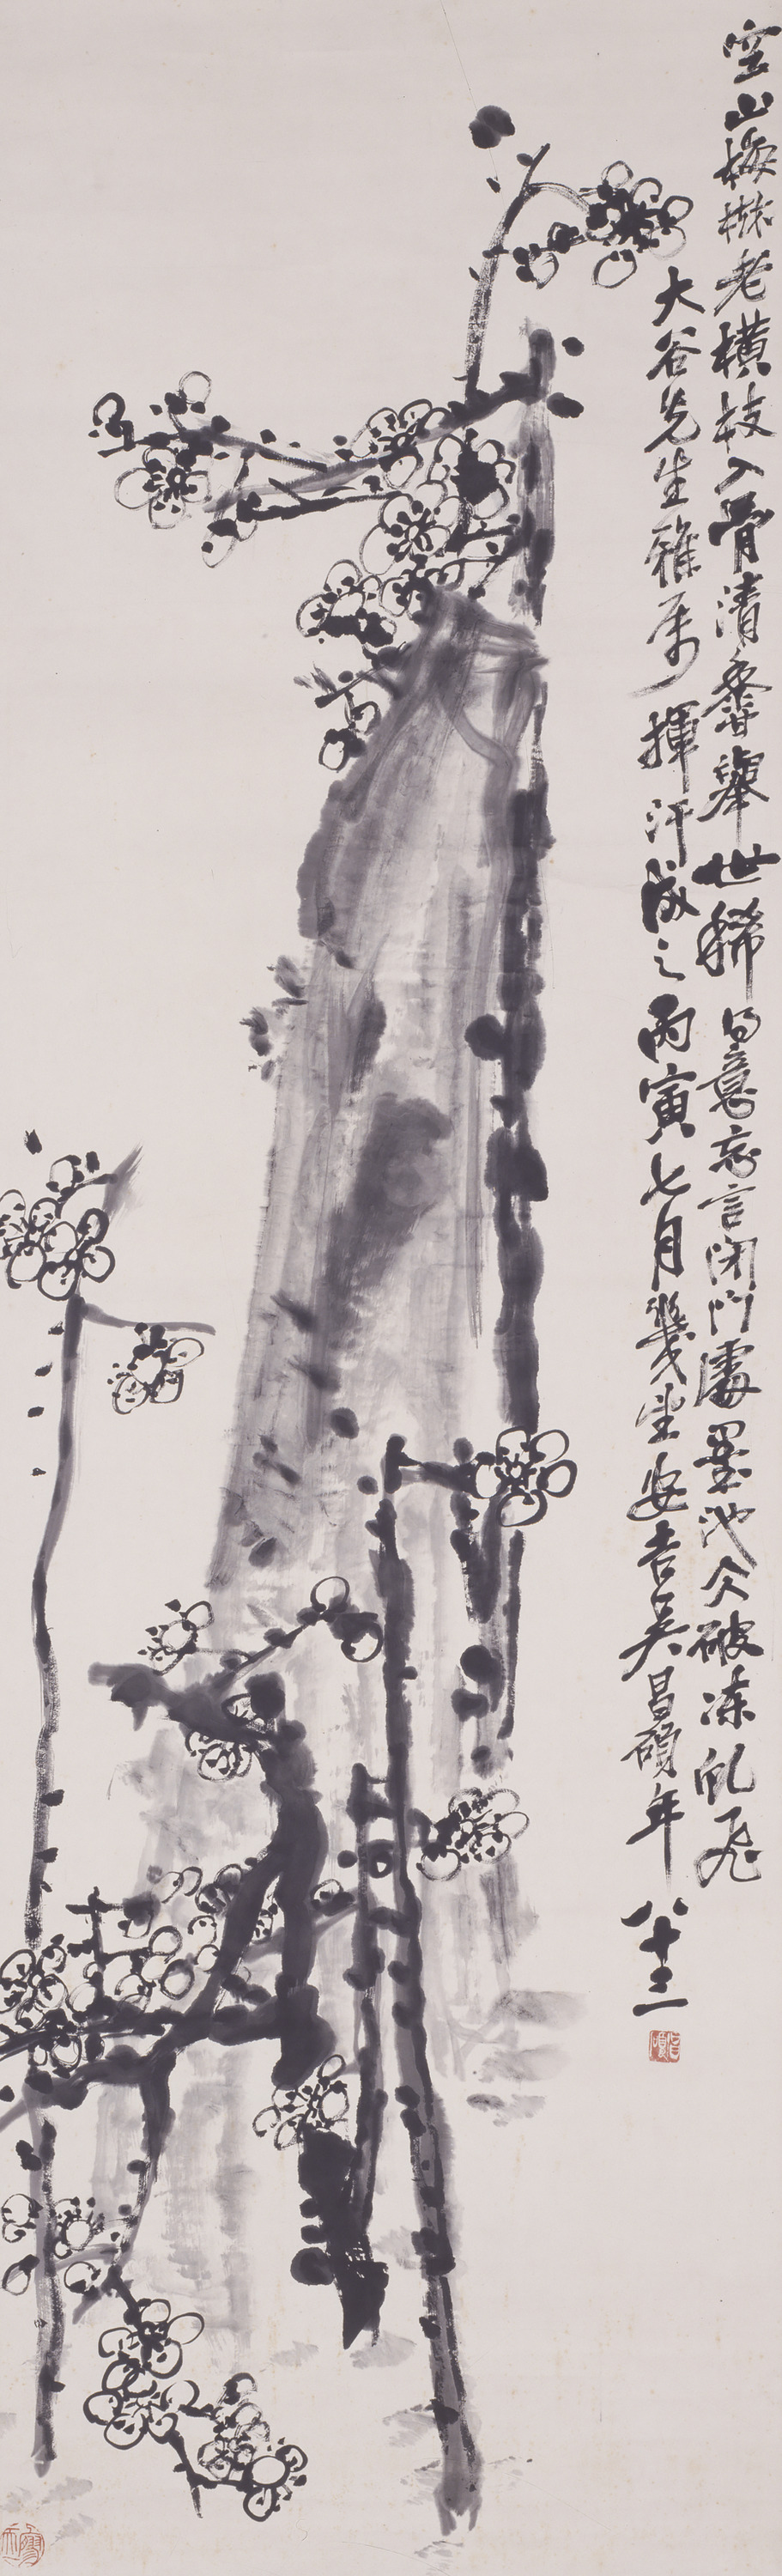 空山梅樹老橫枝入骨清香舉世稀得意忘言閉門處墨池冰破凍虬飛
大谷先生雅屬揮汗成之丙寅七月幾望安吉吳昌碩年八十三